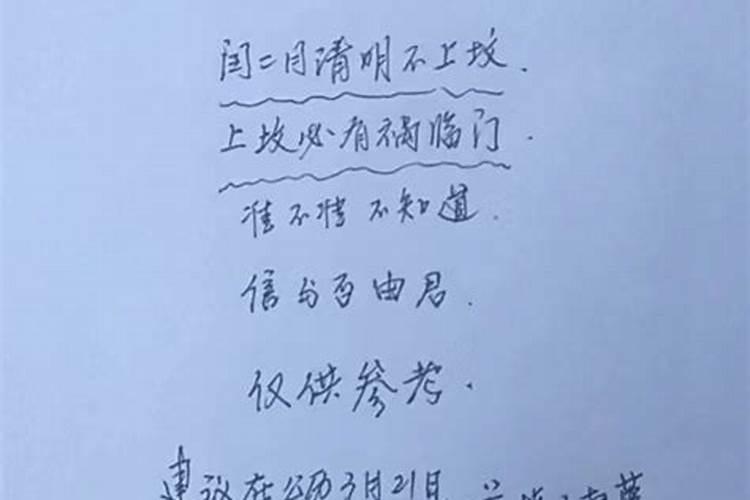 闰二月清明不上坟.
上坟必有祸临门.
准不准不知道.
信与否由君.
仅供参考.
建议在公历3月21日